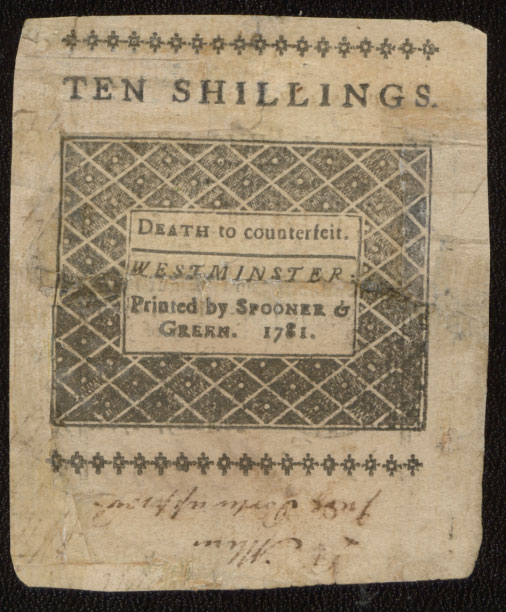 TEN SHILLINGS.
DEATH to counterfeit.
WESTMINSTER:
Printed by SPOONER &
GREEN. 1781.